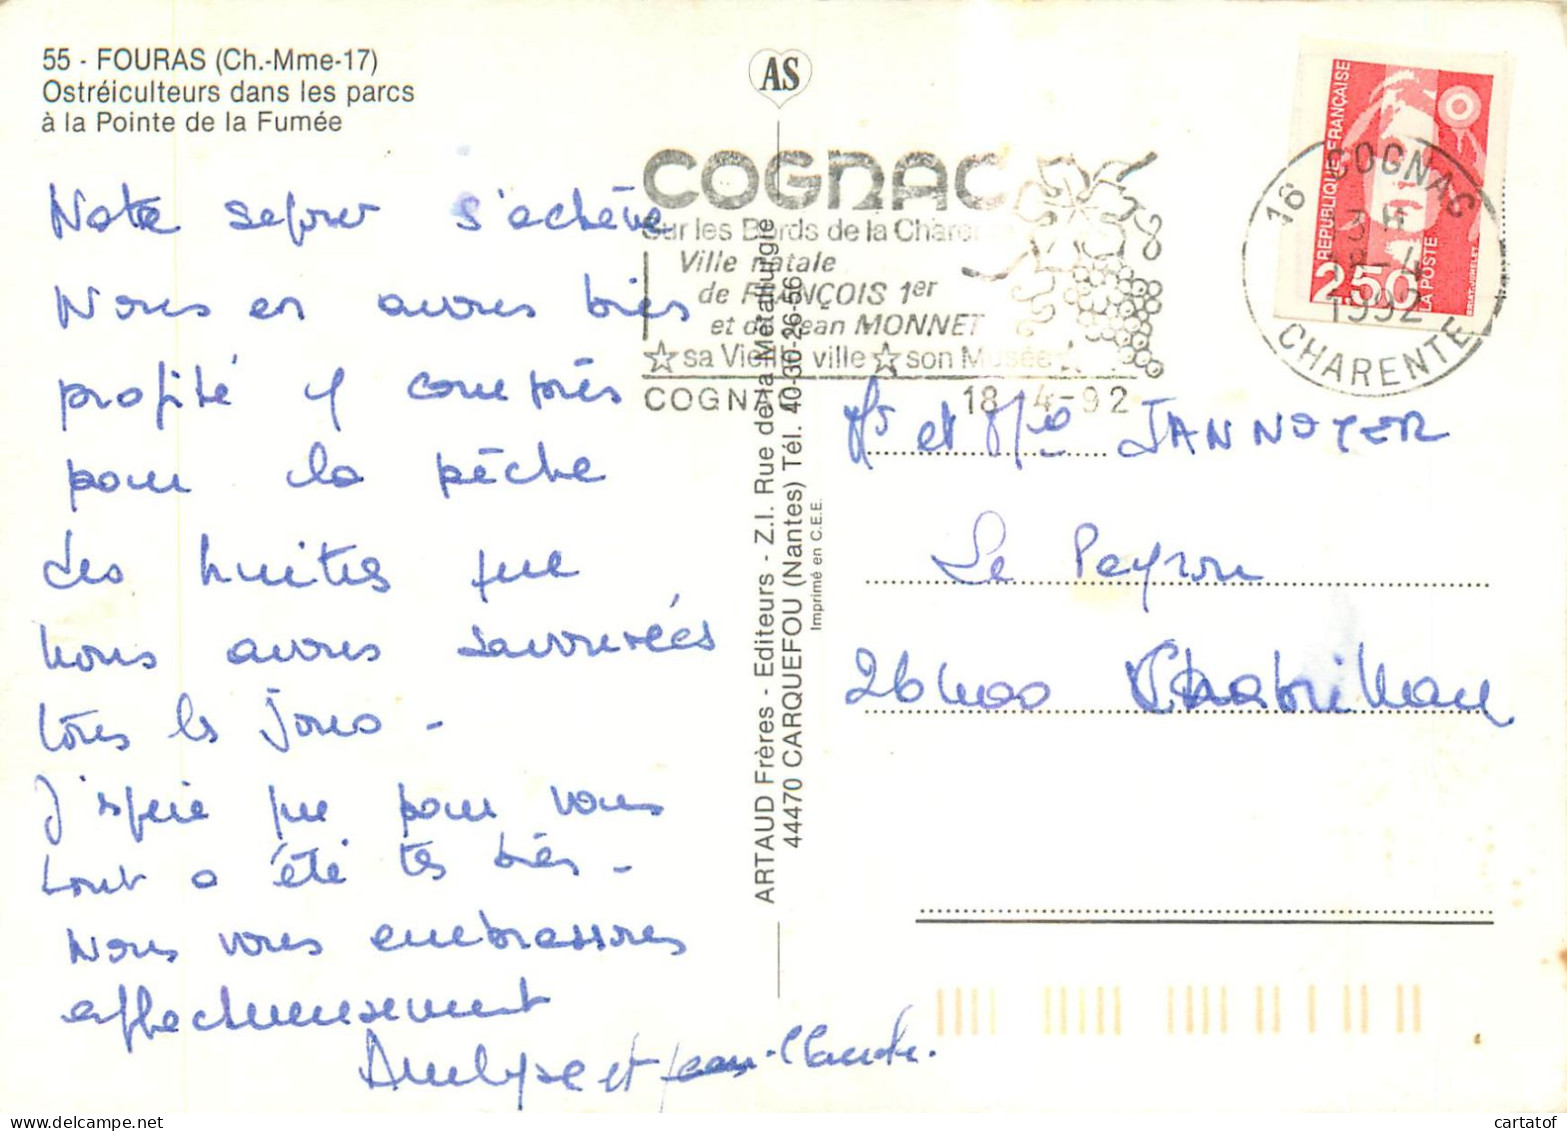 55 - FOURAS (Ch.-Mme-17)
Ostréiculteurs dans les parcs
à la Pointe de la Fumée
AS
Notre séjour s'achève
Nous en avons bien
profité y compris
pour la pêche
des huîtres que
nous avons savourées
tous les jours -
J'espère que pour vous
tout a été très bien -
Nous vous embrassons
affectueusement
et Jean-Claude.
ARTAUD Frères - Editeurs - Z.I. Rue de la Métallurgie
44470 CARQUEFOU (Nantes) Tél. 40-30-26-56
Imprimé en C.E.E.
COGNAC
Sur les Bords de la Charente
Ville natale
de FRANÇOIS 1er
et de Jean MONNET
☆ sa Vieille ville ☆ son Musée ☆
COGNAC 18-4-92
REPUBLIQUE FRANÇAISE
2,50
LA POSTE
16 COGNAC
13 H
18-4
1992
CHARENTE
Mr et Mme JANNOYER
Le Peyron
26400 Chabrillan
cartatof.com